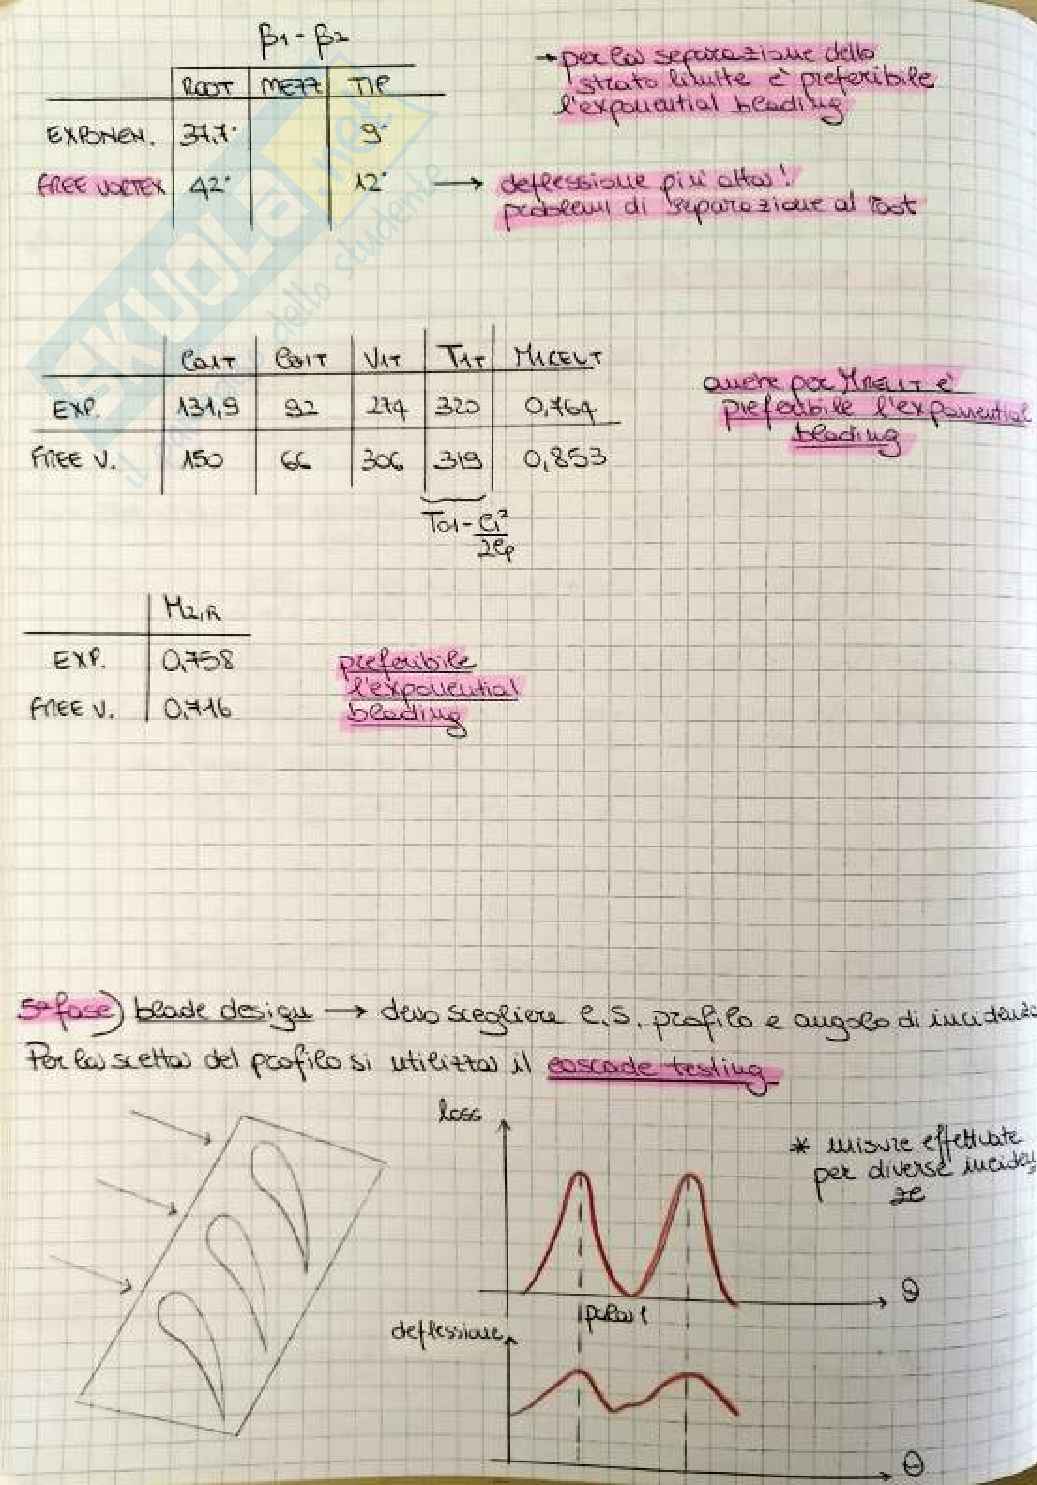 β1 - β2
ROOT MEZZ TIP
EXPONEN. 37,7° 9°
FREE VORTEX 42° 12°
→ per la separazione dello
strato limite è preferibile
l'exponential blading
→ deflessione più alta!
problemi di separazione al root
Ca1T Cθ1T V1T T1T M1RELT
EXP. 131,9 92 274 320 0,764
FREE V. 150 66 306 319 0,853
T01 - C1²
2cp
anche per MREL1T è
preferibile l'exponential
blading
M2,R
EXP. 0,758
FREE V. 0,716
preferibile
l'exponential
blading
5ª fase) blade design → devo scegliere c, s, profilo e angolo di incidenza
Per la scelta del profilo si utilizza il cascade testing
loss
* misure effettuate
per diverse inciden
ze
θ
pala 1
deflessione
θ
SKUOLA.net
il paradiso dello studente